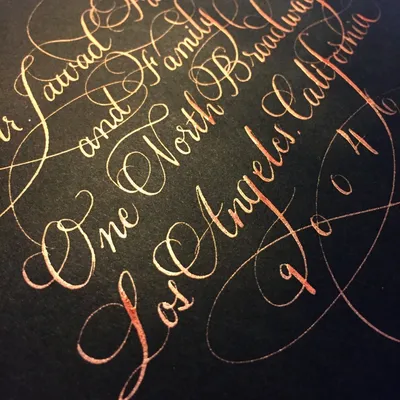 Mr. Jawad
and Family
One North Broadway
Los Angeles, California
90046